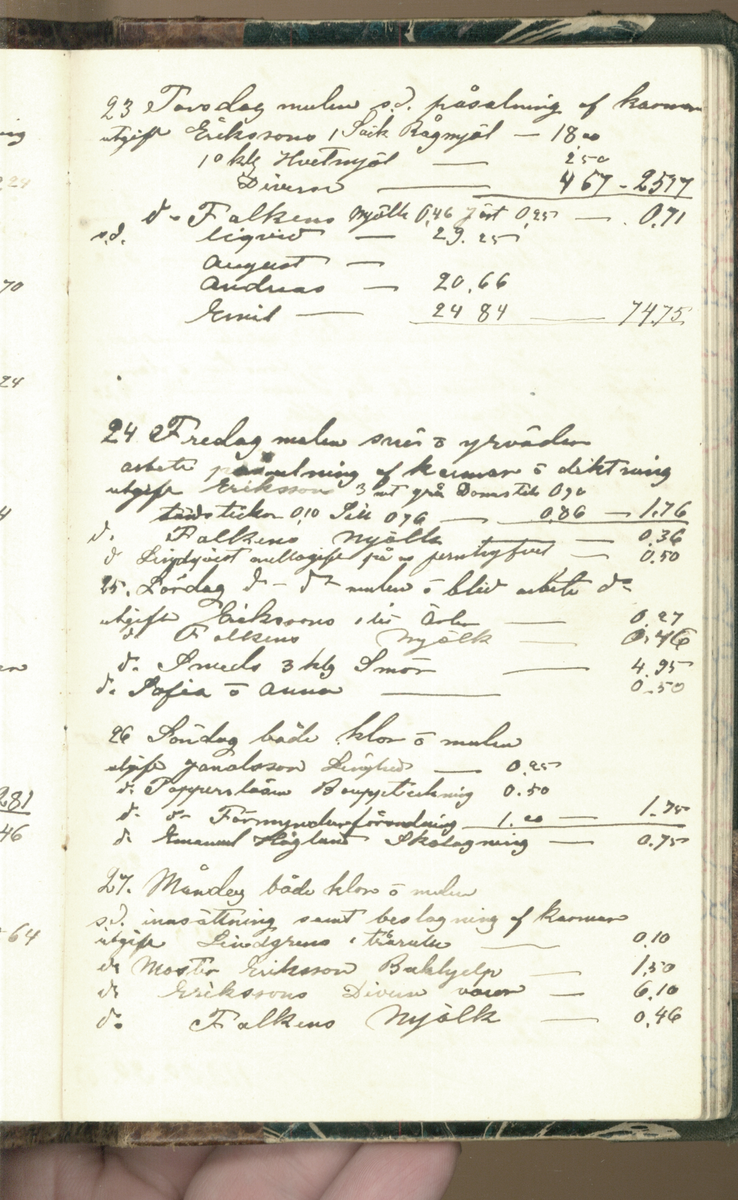 23 Torsdag mulen s.d. påsalning af karmar
utgift Erikssons 1 Säck Rågmjöl — 18,00
10 klg Hvetmjöl — 2,50
Diverse — 4 67 - 25,17
d- Falkens Mjölk 0,46 Jäst 0,25 — 0,71
s.d. liqvid — 29.25
August —
Andreas — 20,66
Emil — 24 84 — 74,75
24 Fredag mulen snö o yrväder
arbete påsalning af karmar o diktning
utgift Erikssons 3 0,90
tändstickor 0,10 Sill 0,76 — 0,86 — 1.76
d. Falkens Mjölk — 0.36
d Lindqvist — 0.50
25. Lördag d- d- mulen o blid arbete d-
utgift Erikssons — 0,27
d Falkens Mjölk — 0.46
d. Smeds 3 klg Smör — 4.95
d. Sofia o Anna — 0.50
26 Söndag både klar o mulen
utgift Janalsson — 0,25
d. Bouppteckning 0.50
d. d- Förmyndarförordning 1.00 — 1.75
d. Emanuel Höglund Skolagning — 0.75
27. Måndag både klar o mulen
s.d. innsättning samt beslagning af karmar
utgift Lindgrens 1 — 0.10
d. Moster Eriksson Bakhjelp — 1,50
d. Erikssons Diverse varor — 6,10
d. Falkens Mjölk — 0.46
70
24
4
281
46
64